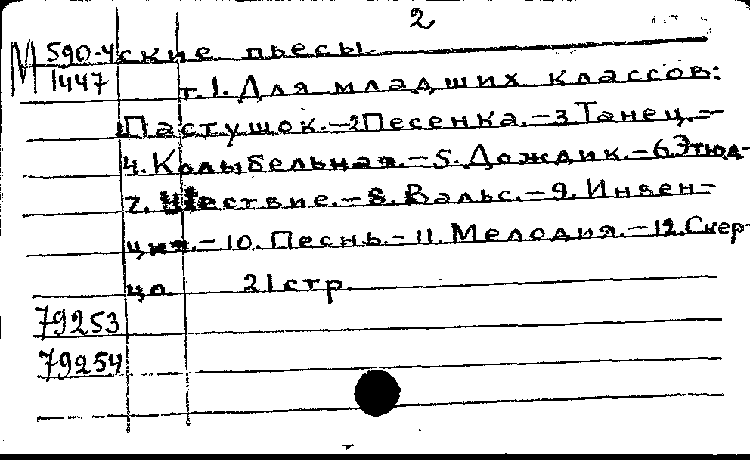 2
М 590-4
1447
ские пьесы.
т. 1. Для младших классов:
Пастушок.-2Песенка.-3.Танец.-
4. Колыбельная.-5. Дождик.-6.Этюд-
7. Шествие.-8. Вальс.-9. Инвен-
ция.-10. Песнь.-11. Мелодия.-12.Скер-
цо. 21стр.
79253
79254